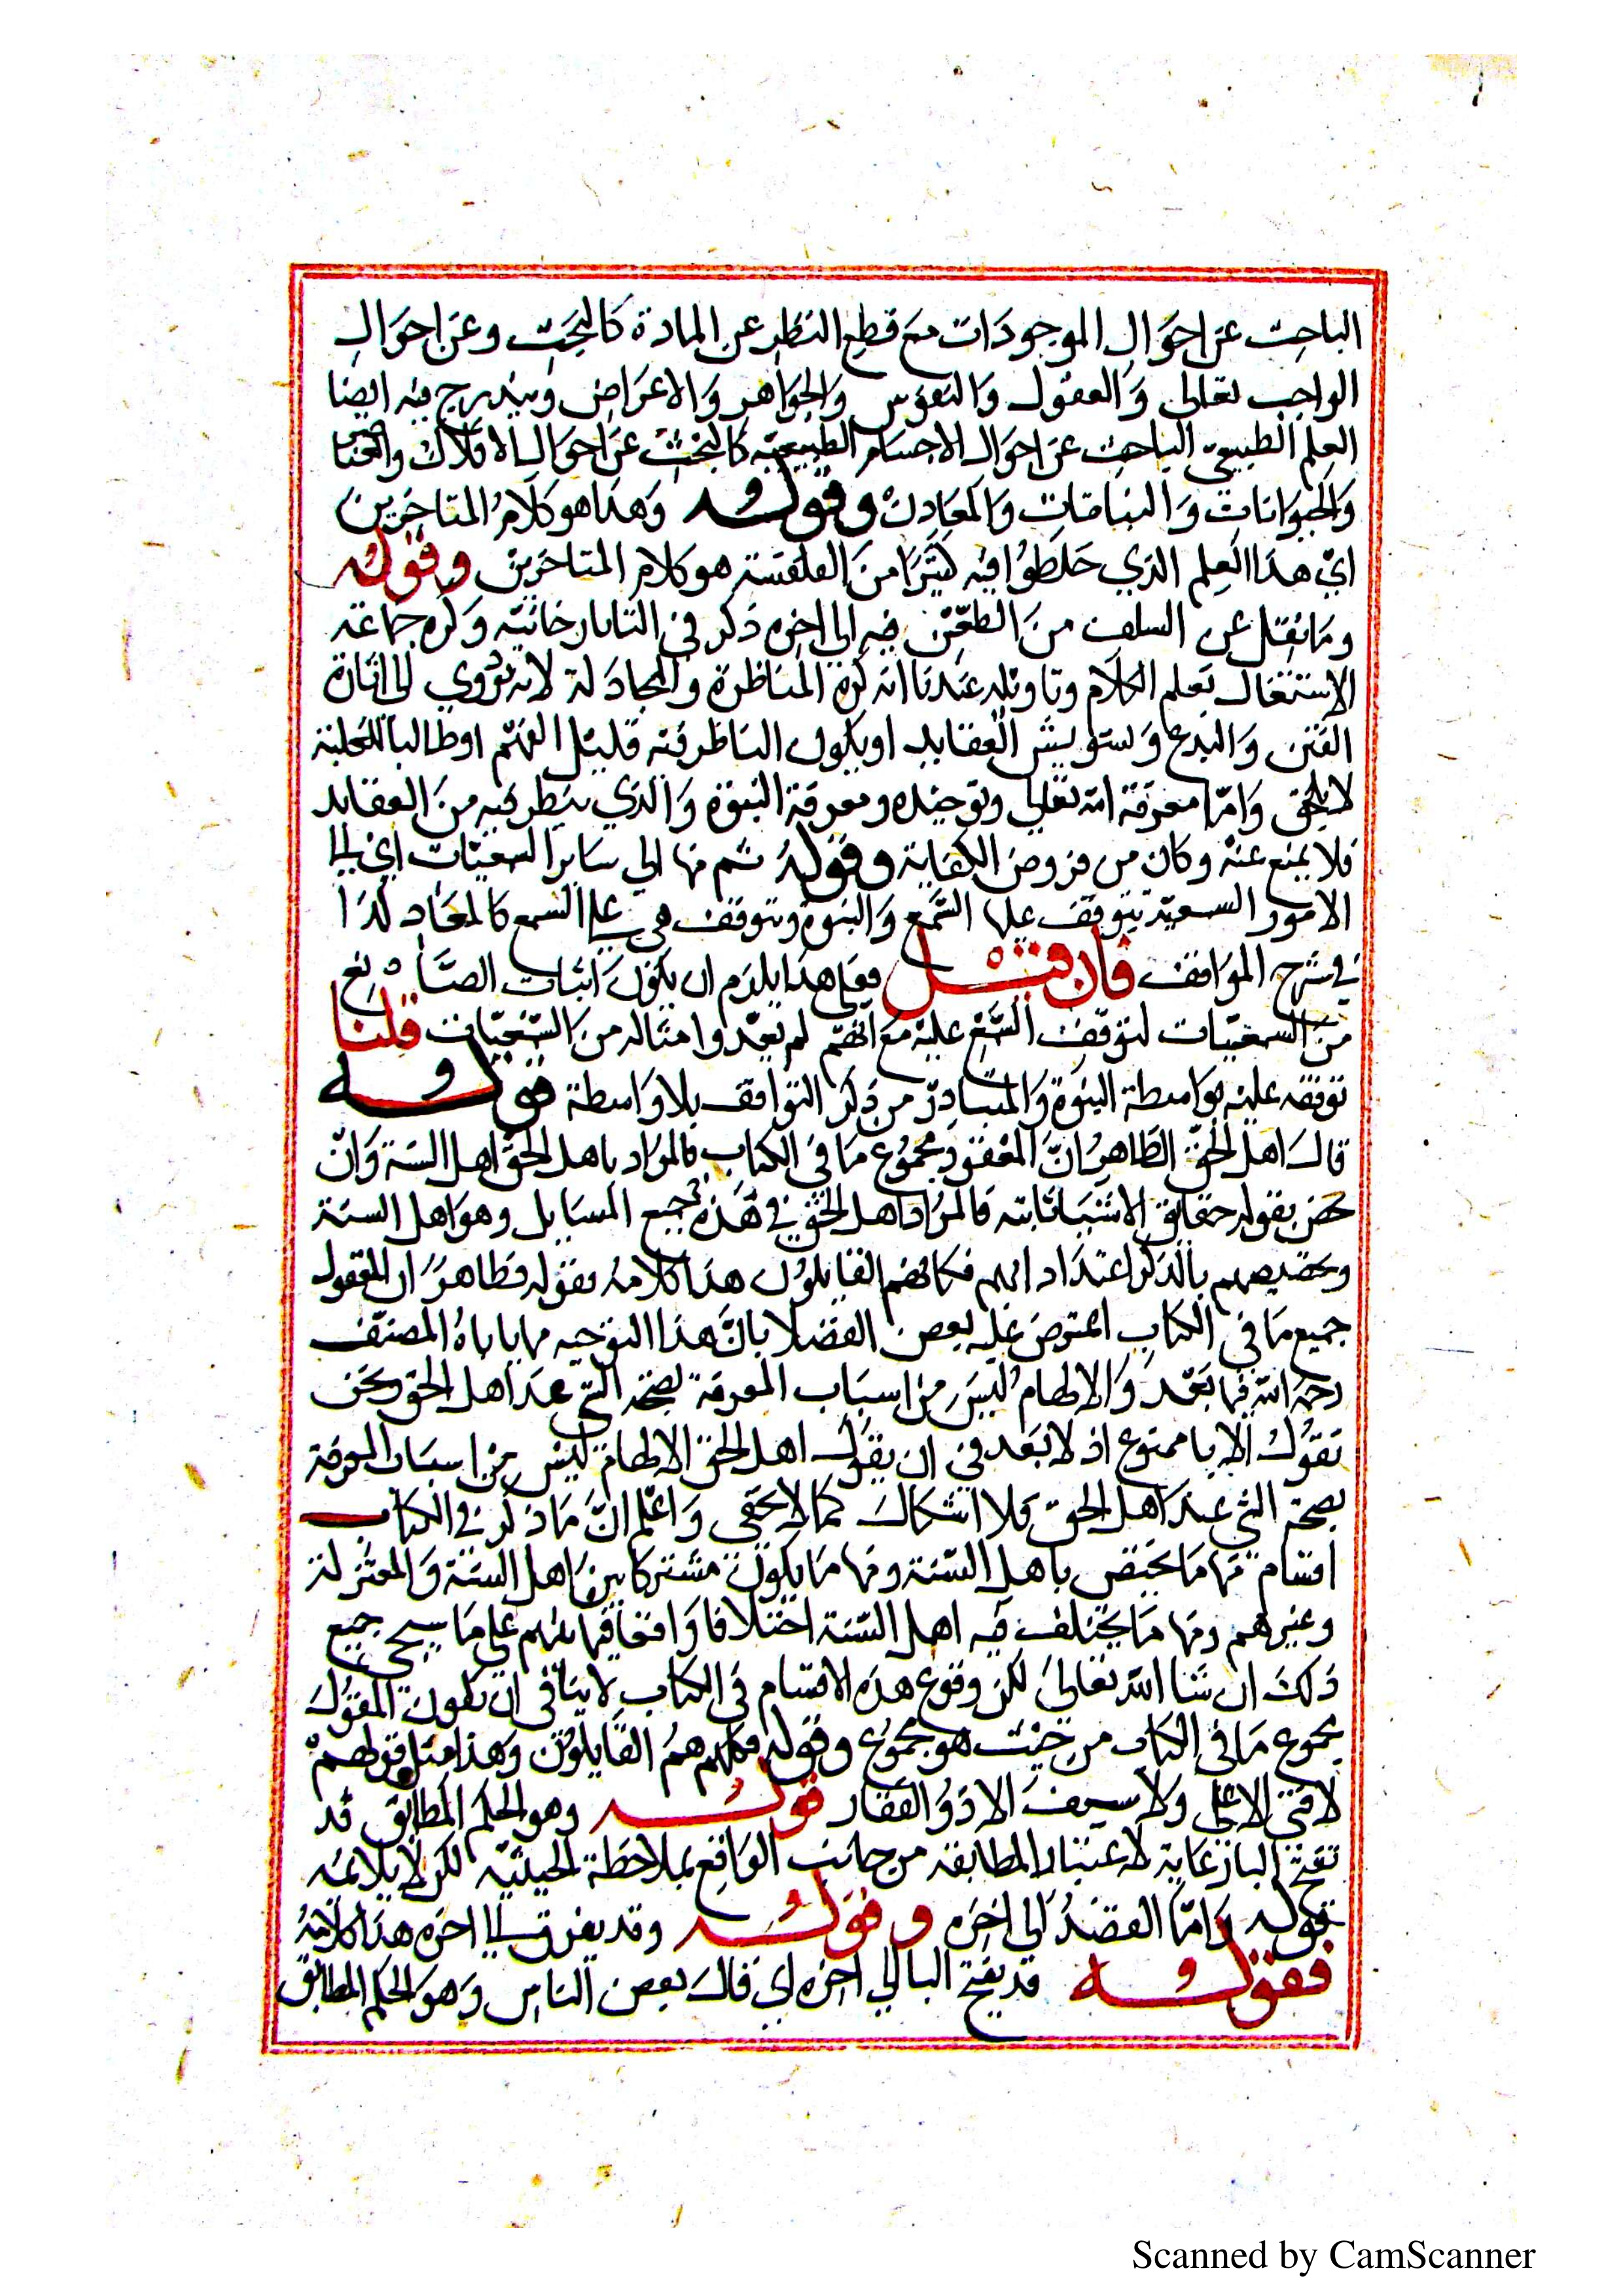 الباحث عن احوال الموجودات مع قطع النظر عن المادة كالبحث وعن احوال
الواجب تعالى والعقول والنفوس والجواهر والاعراض ويندرج فيه ايضا
العلم الطبيعي الباحث عن احوال الاجسام الطبيعية كالبحث عن احوال الافلاك والعناصر
والحيوانات والنباتات والمعادن وقوله وهذا هو كلام المتاخرين
اي هذا العلم الذي خلطوا فيه كثيرا من الفلسفة هو كلام المتاخرين وقوله
وما نقل عن السلف من الطعن فيه الى اخره ذكر في التاتارخانية وكره جماعة
الاشتغال بعلم الكلام وتاويله عندنا انه كره المناظرة والمجادلة لانه يؤدي الى اثارة
الفتن والبدع وتشويش العقايد او يكون الناظر فيه قليل الفهم او طالبا للغلبة
لا للحق واما معرفة الله تعالى وتوحيده ومعرفة النبوة والذي ينظر فيه من العقايد
فلا يمنع عنه وكان من فروض الكفاية وقوله ثم منها الى ساير السمعيات اي الى
الامور السمعية يتوقف عليها السمع والنبوة وتتوقف هي على السمع كالمعاد كذا
في شرح المواقف فان قيل فعلى هذا يلزم ان يكون اثبات الصانع
من السمعيات لتوقف السمع عليه مع انهم لم يعدوا امثاله من السمعيات قلنا
توقفه عليه بواسطة النبوة والمتبادر من ذكر التوافق بلا واسطة قوله
قال اهل الحق الظاهر ان المقول مجموع ما في الكتاب فالمراد باهل الحق اهل السنة وان
خص بقوله حقايق الاشيا ثابتة فالمراد اهل الحق في هذه جميع المسايل وهو اهل السنة
وتخصيصهم بالذكر اعتداد بهم فكانهم القايلون هذا كلامه بقوله فظاهر ان المقول
جميع ما في الكتاب اعترض عليه بعض الفضلا بان هذا التوجيه مما ياباه المصنف
رحمه الله فيما بعد والالهام ليس من اسباب المعرفة بصحة الشي عند اهل الحق ونحن
نقول الابا ممنوع اذ لا بعد في ان يقول اهل الحق الالهام ليس من اسباب المعرفة
بصحة الشي عند اهل الحق فلا اشكال كما لا يخفى واعلم ان ما ذكر في الكتاب
اقسام منها ما يختص باهل السنة ومنها ما يكون مشتركا بين اهل السنة والمعتزلة
وغيرهم ومنها ما يختلف فيه اهل السنة اختلافا واقعا فيما بينهم على ما سيجي جميع
ذلك ان شا الله تعالى لكن وقوع هذه الاقسام في الكتاب لا ينافي ان يكون المقول
مجموع ما في الكتاب من حيث هو مجموع وقوله فكانهم هم القايلون وهذا مثل قولهم
لا فتى الا علي ولا سيف الا ذو الفقار قوله وهو الحكم المطابق قد
تفتح البا رعاية لاعتبار المطابقة من جانب الواقع بملاحظة الحيثية لكن لا يلائمه
قوله واما الصدق الى اخره وقوله وقد يفرق الى اخره هذا كلامه
فقوله قد يفتح البا الى اخره اي قال بعض الناس وهو الحكم المطابق
Scanned by CamScanner